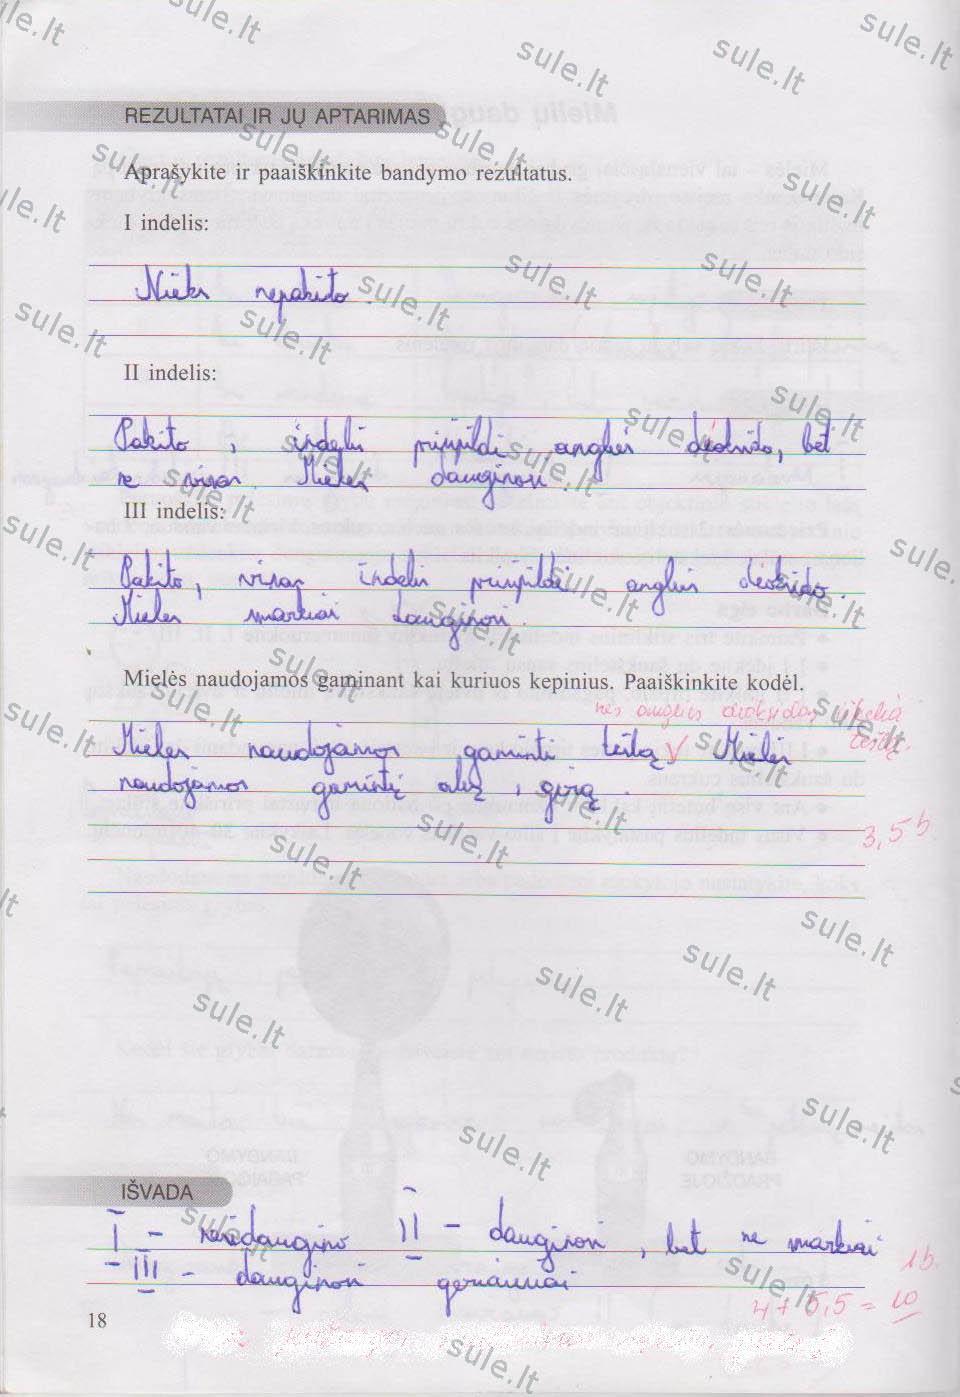 REZULTATAI IR JŲ APTARIMAS
Aprašykite ir paaiškinkite bandymo rezultatus.
I indelis:
Nieks nepakito.
II indelis:
Pakito, indelis prisipildi anglies dioksido, bet
ne visas. Mielės dauginosi.
III indelis:
Pakito, visas indelis prisipildi anglies dioksido.
Mielės smarkiai dauginosi.
Mielės naudojamos gaminant kai kuriuos kepinius. Paaiškinkite kodėl.
nes anglies dioksidas iškelia
tešlą.
Mielės naudojamos gaminti tešlą V Mielės
naudojamos gamintį alų, girą.
3,5 b
IŠVADA
I - nesidaugino II - dauginosi, bet ne smarkiai
- III - dauginosi geriausiai
1b.
4 + 5,5 = 10
18
sule.lt